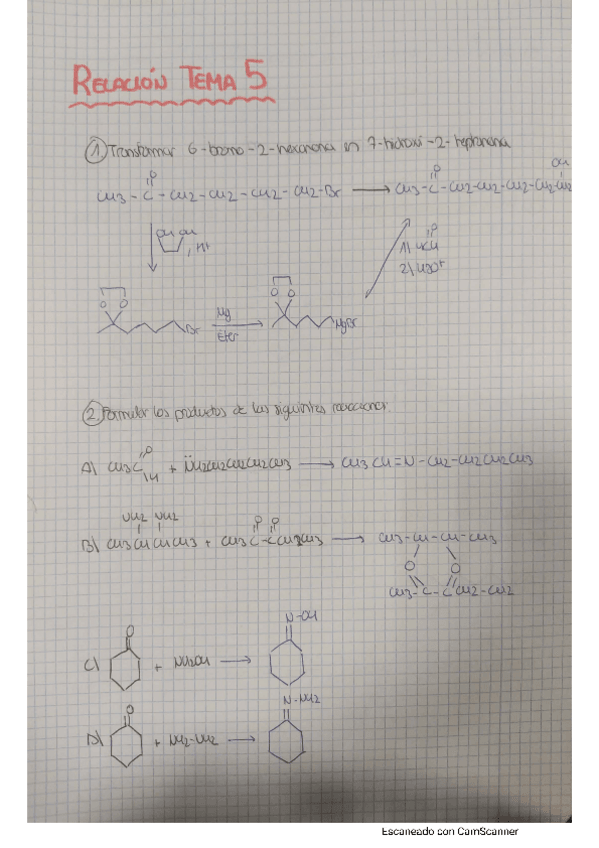 RELACIÓN TEMA 5
① Transformar 6-bromo-2-hexanona en 7-hidroxi-2-heptanona
O
OH
CH3-C-CH2-CH2-CH2-CH2-Br → CH3-C-CH2-CH2-CH2-CH2-CH2
OH OH
, H+
1) HCH
O
2) H3O+
O O
Br
Mg
Eter
O O
MgBr
② Formular los productos de las siguientes reacciones:
A) CH3C
O
H
+ N̈H2CH2CH2CH2CH3 → CH3CH=N-CH2-CH2CH2CH3
NH2 NH2
O O
B) CH3CHCHCH3 + CH3C-CCH2CH3 → CH3-CH-CH-CH3
O O
CH3-C-C CH2-CH2
O
N-OH
C) + NH2OH →
O
N-NH2
D) + NH2-NH2 →
Escaneado con CamScanner